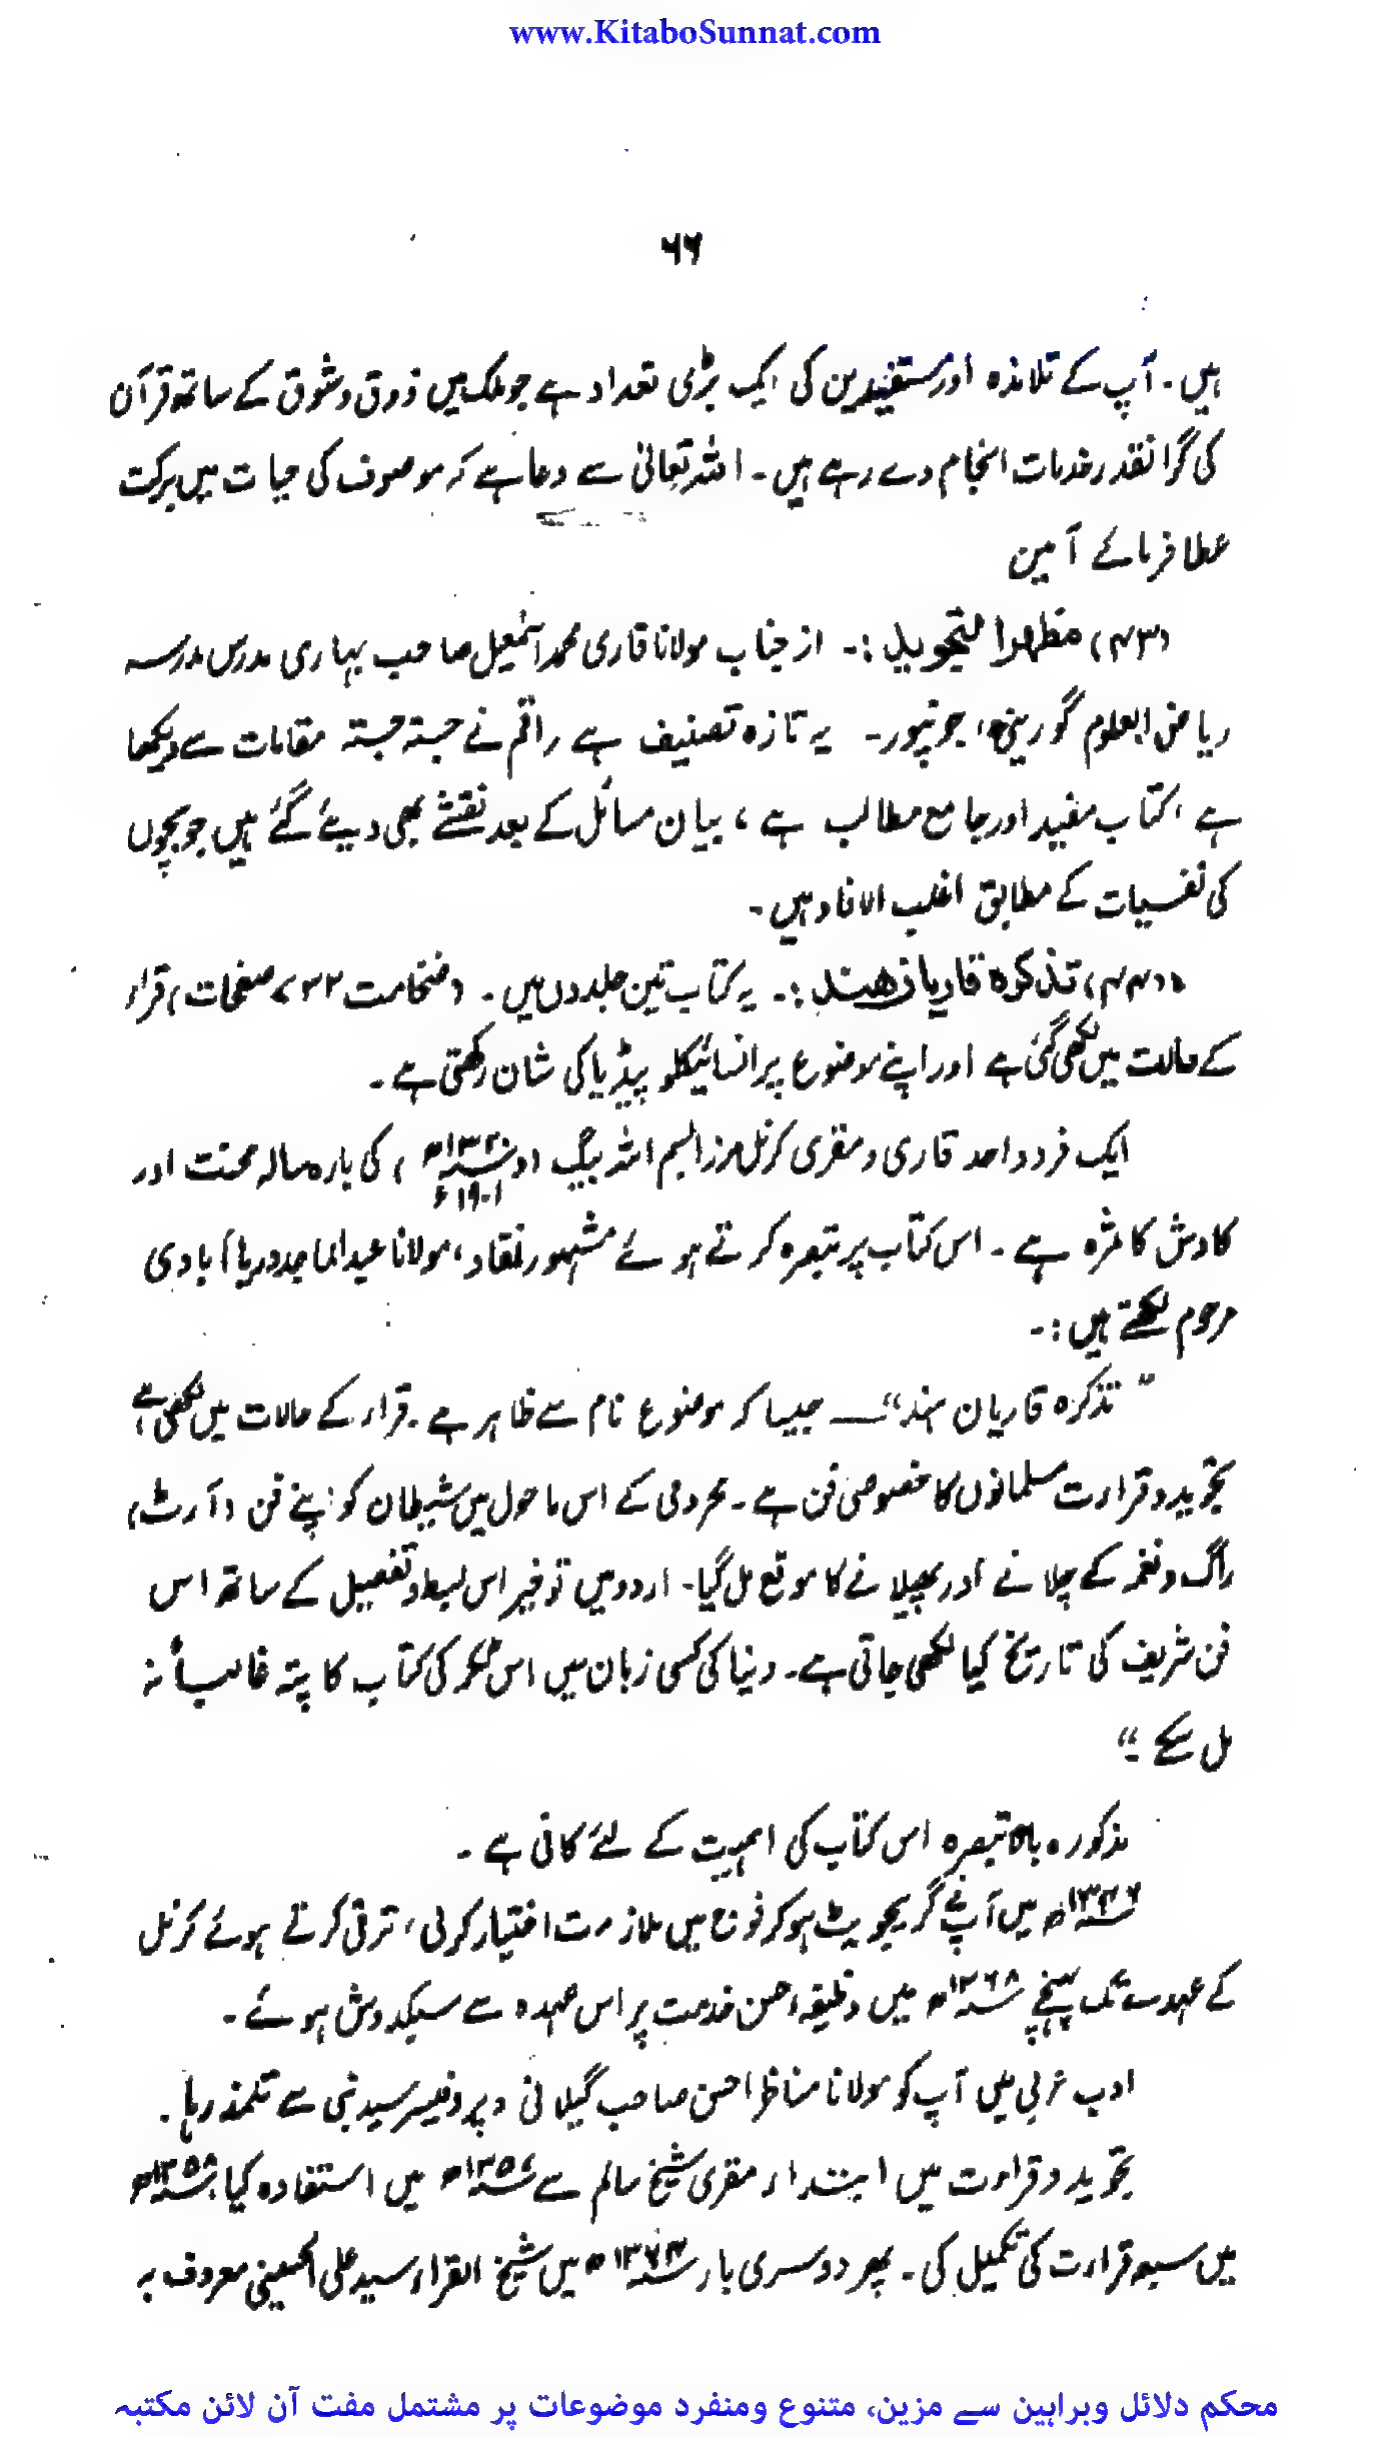 www.KitaboSunnat.com
۶۶
ہیں۔ آپ کے تلامذہ اور مستفیدین کی ایک بڑی تعداد ہے جو ملک میں ذوق و شوق کے ساتھ قرآن
کی گرانقدر خدمات انجام دے رہے ہیں۔ اللہ تعالیٰ سے دعا ہے کہ موصوف کی حیات میں برکت
عطا فرمائے آمین
(۴۳) مظہر التجوید :۔ از جناب مولانا قاری محمد اسمٰعیل صاحب بہاری مدرس مدرسہ
ریاض العلوم گورینی، جونپور۔ یہ تازہ تصنیف ہے راقم نے جستہ جستہ مقامات سے دیکھا
ہے، کتاب مفید اور جامع مطالب ہے، بیان مسائل کے بعد نقشے بھی دیئے گئے ہیں جو بچوں
کی نفسیات کے مطابق اغلب الافاد ہیں۔
(۴۴) تذکرہ قاریان ھند :۔ یہ کتاب تین جلدوں میں۔ (ضخامت ۷۳۲ صفحات) قراء
کے حالات میں لکھی گئی ہے اور اپنے موضوع پر انسائیکلو پیڈیا کی شان رکھتی ہے۔
ایک فرد واحد قاری و مقری کرنل مرزا بسم اللہ بیگ (و ۱۳۲۰ھ ۱۹۰۱ء) کی بارہ سالہ محنت اور
کاوش کا ثمرہ ہے۔ اس کتاب پر تبصرہ کرتے ہوئے مشہور نقاد، مولانا عبدالماجد دریا آبادی
مرحوم لکھتے ہیں :۔
”تذکرہ قاریان ہند“ — جیسا کہ موضوع نام سے ظاہر ہے۔ قراء کے حالات میں لکھی ہے
تجوید و قراءت مسلمانوں کا خصوصی فن ہے۔ محرومی کے اس ماحول میں شیطان کو اپنے فن (آرٹ)
راگ و نغمہ کے چلانے اور پھیلانے کا موقع مل گیا۔ اردو میں تو خیر اس بسط و تفصیل کے ساتھ اس
فن شریف کی تاریخ کیا لکھی جاتی ہے۔ دنیا کی کسی زبان میں اس ٹکر کی کتاب کا پتہ غالباً نہ
مل سکے۔“
مذکورہ بالا تبصرہ اس کتاب کی اہمیت کے لئے کافی ہے۔
۱۳۴۶ھ میں آپ نے گریجویٹ ہو کر فوج میں ملازمت اختیار کر لی، ترقی کرتے ہوئے کرنل
کے عہدے تک پہنچے ۱۳۶۸ھ میں وظیفہ حسن خدمت پر اس عہدہ سے سبکدوش ہوئے۔
ادب عربی میں آپ کو مولانا مناظر احسن صاحب گیلانی و پروفیسر سید نبی سے تلمذ رہا۔
تجوید و قراءت میں ابتداء مقری شیخ سالم سے ۱۳۵۷ھ میں استفادہ کیا، ۱۳۵۸ھ
میں سبعہ قراءت کی تکمیل کی۔ پھر دوسری بار ۱۳۷۴ھ میں شیخ القراء سید علی الحسینی معروف بہ
محکم دلائل وبراہین سے مزین، متنوع ومنفرد موضوعات پر مشتمل مفت آن لائن مکتبہ